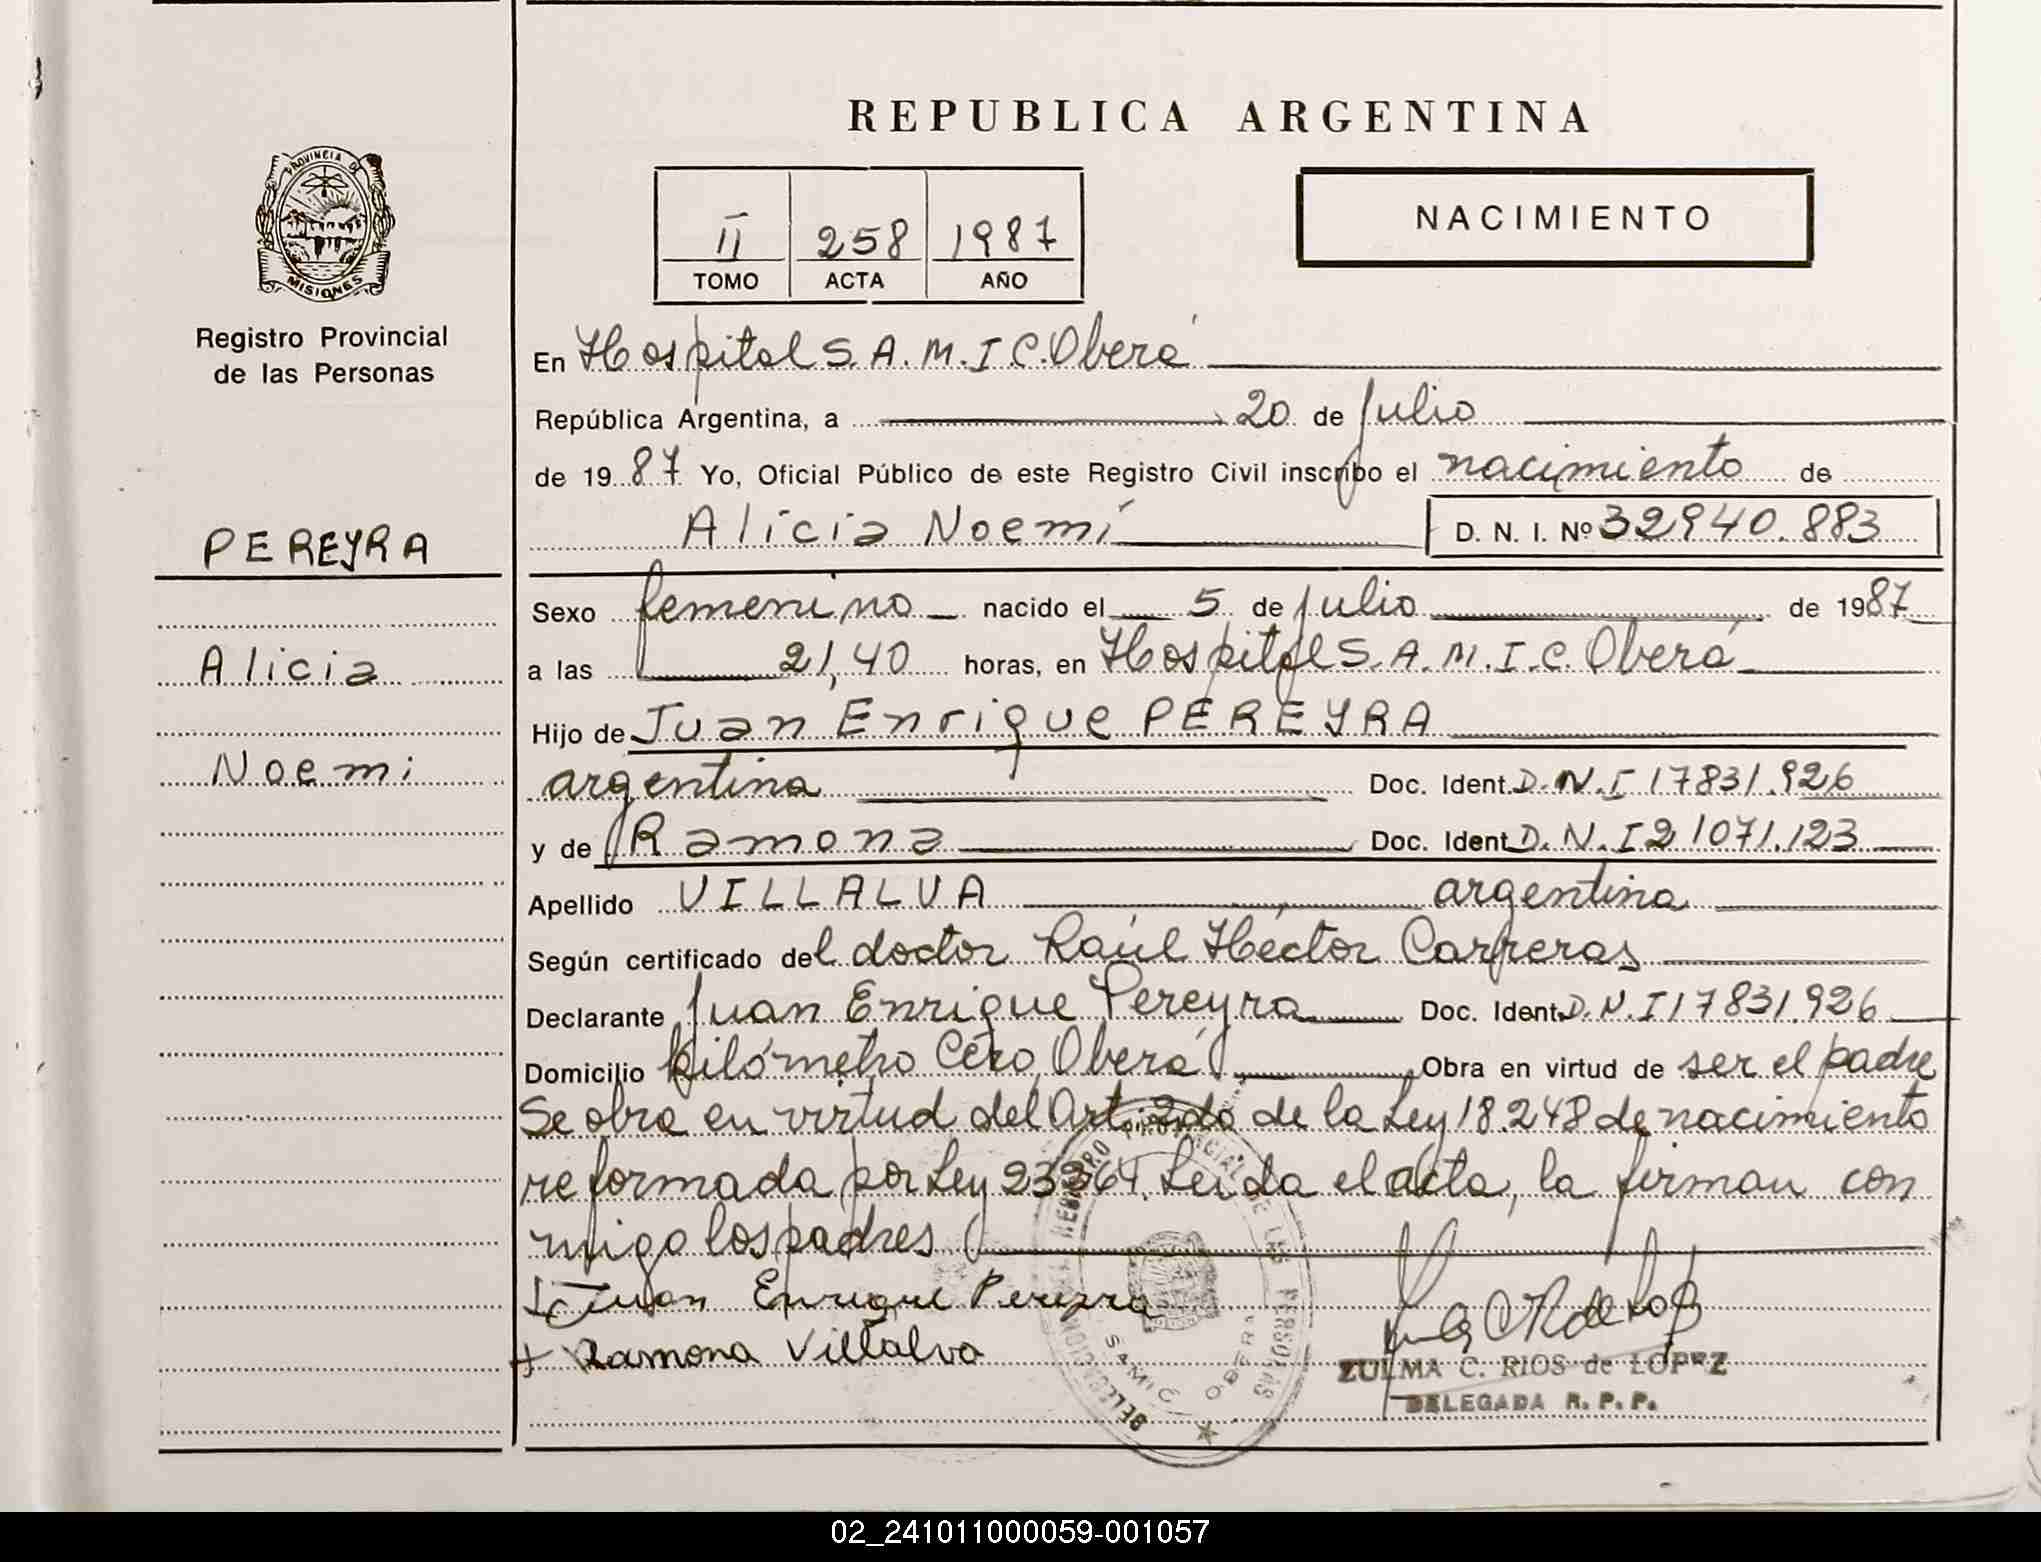 REPUBLICA ARGENTINA
PROVINCIA DE
MISIONES
Registro Provincial
de las Personas
II 258 1987
TOMO ACTA AÑO
NACIMIENTO
En Hospital S.A.M.I.C. Oberá
República Argentina, a 20 de julio
de 1987 Yo, Oficial Público de este Registro Civil inscribo el nacimiento de
Alicia Noemí D. N. I. Nº 32940.883
PEREYRA
Alicia
Noemi
Sexo femenino nacido el 5 de julio de 1987
a las 21,40 horas, en Hospital S.A.M.I.C. Oberá
Hijo de Juan Enrique PEREYRA
argentina Doc. Ident. D.N.I 17831.926
y de Ramona Doc. Ident. D.N.I 21071.123
Apellido VILLALVA argentina
Según certificado del doctor Raúl Héctor Carreras
Declarante Juan Enrique Pereyra Doc. Ident. D.N.I 17831.926
Domicilio kilómetro Cero, Oberá Obra en virtud de ser el padre
Se obra en virtud del Art. 2do de la Ley 18.248 de nacimiento
reformada por Ley 23264. Leída el acta, la firman con
migo los padres
Juan Enrique Pereyra
+ Ramona Villalva
ZULMA C. RIOS de LOPEZ
DELEGADA R. P. P.
SAMIC OBERA
02_241011000059-001057